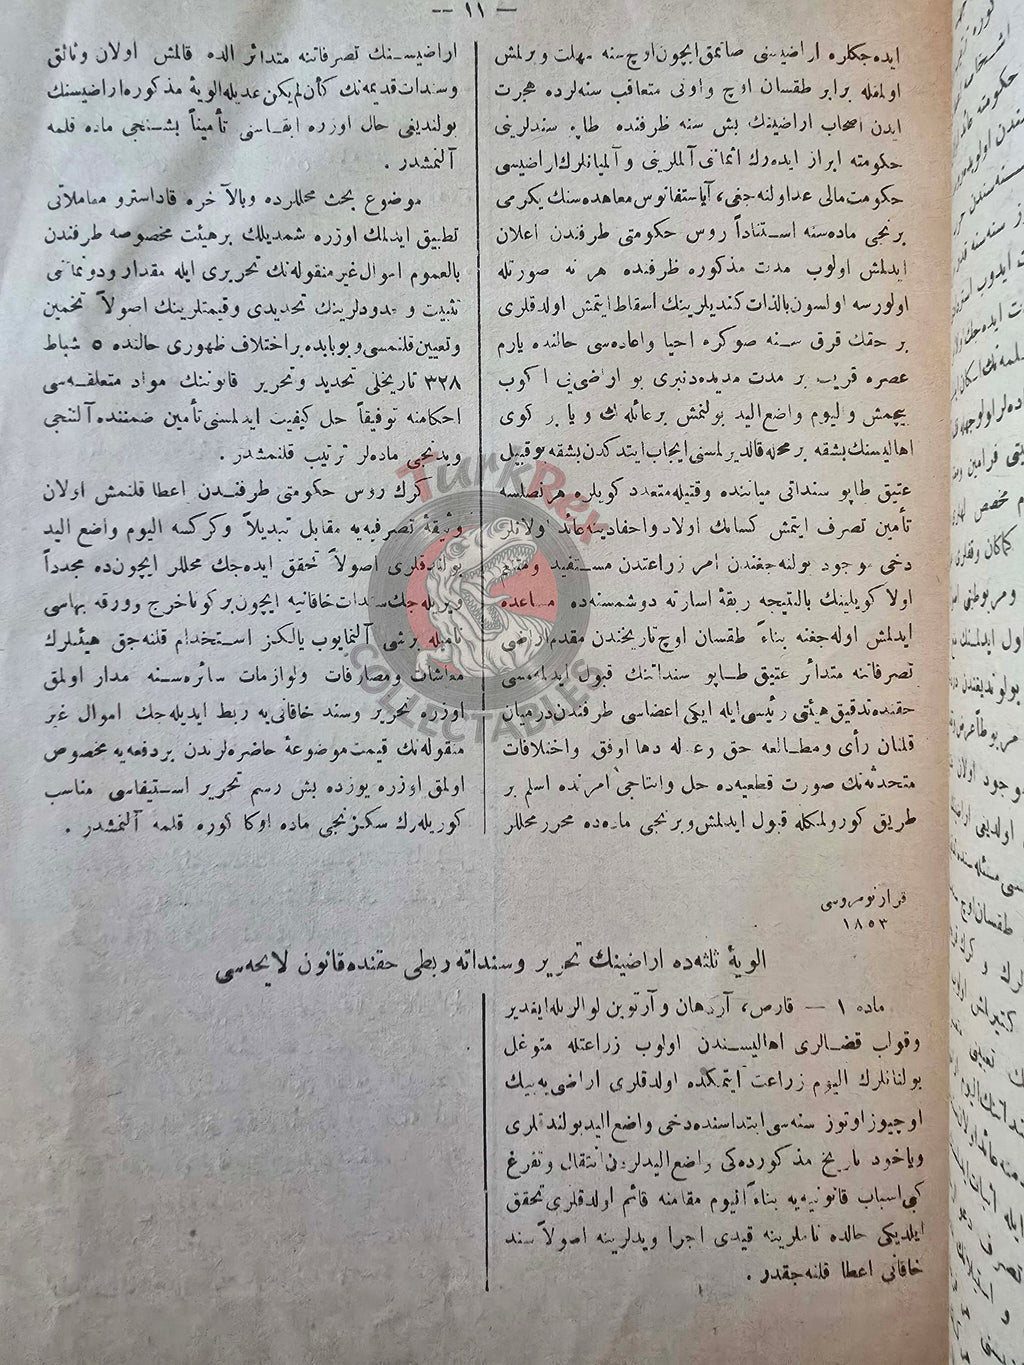 — ١١ —
ايده‌جكلره اراضيسنى صاتمق ايچون اوچ سنه مهلت ويرلمش
اولمغله برابر طقسان اوچ واونى متعاقب سنه‌لرده هجرت
ايدن اصحاب اراضينك بش سنه ظرفنده طاپو سندلرينى
حكومته ابراز ايده‌رك اثمانى آلملرينى و آلميانلرك اراضيسى
حكومت مالى عد اولنه‌جغى، آياستفانوس معاهده‌سنك يكرمى
برنجى ماده‌سنه استناداً روس حكومتى طرفندن اعلان
ايدلمش اولوب مدت مذكوره ظرفنده هر نه صورتله
اولورسه اولسون بالذات كنديلرينك اسقاط ايتمش اولدقلرى
بر حقك قرق سنه صوكره احيا واعاده‌سى حالنده يارم
عصره قريب بر مدت مديده‌دنبرى بو اراضى‌ئى اكوب
بيچمش واليوم واضع اليد بولنمش بر عائله‌نك و يا بر كوى
اهاليسنك بشقه بر محله قالديرلمسنى ايجاب ايتدكدن بشقه بو قبيل
عتيق طاپو سنداتى مياننده وقتيله متعدد كويلره هر نصلسه
تأمين تصرف ايتمش كسانك اولاد واحفادينه عائد اولانلر
دخى موجود بولنه‌جغندن امر زراعتدن مستفيد ومتنعم
اولان كويلينك بالنتيجه ربقۀ اسارته دوشمسنه‌ده مساعده
ايدلمش اوله‌جغنه بناءً طقسان اوچ تاريخندن مقدم اراضى
تصرفاتنه متدائر عتيق طاپو سنداتنك قبول ايدلمه‌مسى
حقنده تدقيق هيئتى رئيسى ايله ايكى اعضاسى طرفندن درميان
قلنان رأى ومطالعه حق وعدله دها اوفق واختلافات
متحدثه‌نك صورت قطعيه‌ده حل وانتاجى امرنده اسلم بر
طريق كورولمكله قبول ايدلمش وبرنجى ماده‌ده محرر محللر
اراضيسنك تصرفاتنه متدائر الده قالمش اولان وثائق
وسندات قديمه‌نك كأن لم يكن عديله الويۀ مذكوره اراضيسنك
بولنديغى حال اوزره ابقاسنى تأميناً بشنجى ماده قلمه
آلنمشدر .
موضوع بحث محللرده وبالآخره قاداسترو معاملاتى
تطبيق ايدلمك اوزره شمديلك بر هيئت مخصوصه طرفندن
بالعموم اموال غير منقوله‌نك تحريرى ايله مقدار ودونماتنى
تثبيت و حدودلرينك تحديدى وقيمتلرينك اصولاً تخمين
وتعيين قلنمسى وبوبابده بر اختلاف ظهورى حالنده ٥ شباط
٣٢٨ تاريخلى تحديد وتحرير قانوننك مواد متعلقه‌سى
احكامنه توفيقاً حل كيفيت ايدلمسنى تأمين ضمننده آلتنجى
ويدنجى ماده‌لر ترتيب قلنمشدر .
كرك روس حكومتى طرفندن اعطا قلنمش اولان
وثيقۀ تصرفيه‌يه مقابل تبديلاً وكركسه اليوم واضع اليد
بولندقلرى اصولاً تحقق ايده‌جك محللر ايچون‌ده مجدداً
ويريله‌جك سندات خاقانيه ايچون بر كونا خرج وورقه بهاسى
ناميله برشى آلنمايوب يالكز استخدام قلنه‌جق هيئتلرك
معاشات ومصارفات ولوازمات سائره‌سنه مدار اولمق
اوزره تحرير وسند خاقانى‌يه ربط ايديله‌جك اموال غير
منقوله‌نك قيمت موضوعۀ حاضره‌لرندن بر دفعه‌يه مخصوص
اولمق اوزره يوزده بش رسم تحرير استيفاسى مناسب
كوريله‌رك سكزنجى ماده اوكا كوره قلمه آلنمشدر .
قرار نومروسى
١٨٥٣
الويۀ ثلثه‌ده اراضينك تحرير وسنداته ربطى حقنده قانون لايحه‌سى
ماده ١ — قارص، آردهان و آرتوين لوالريله ايغدير
وقولپ قضالرى اهاليسندن اولوب زراعتله متوغل
بولنانلرك اليوم زراعت ايتمكده اولدقلرى اراضى‌يه بيك
اوچيوز اوتوز سنه‌سى ابتداسنده دخى واضع اليد بولندقلرى
وياخود تاريخ مذكورده‌كى واضع اليدلردن انتقال وتفرغ
كبى اسباب قانونيه‌يه بناءً اليوم مقامنه قائم اولدقلرى تحقق
ايلديكى حالده ناملرينه قيدى اجرا ويدلرينه اصولاً سند
خاقانى اعطا قلنه‌جقدر .
TurkRex
COLLECTABLES